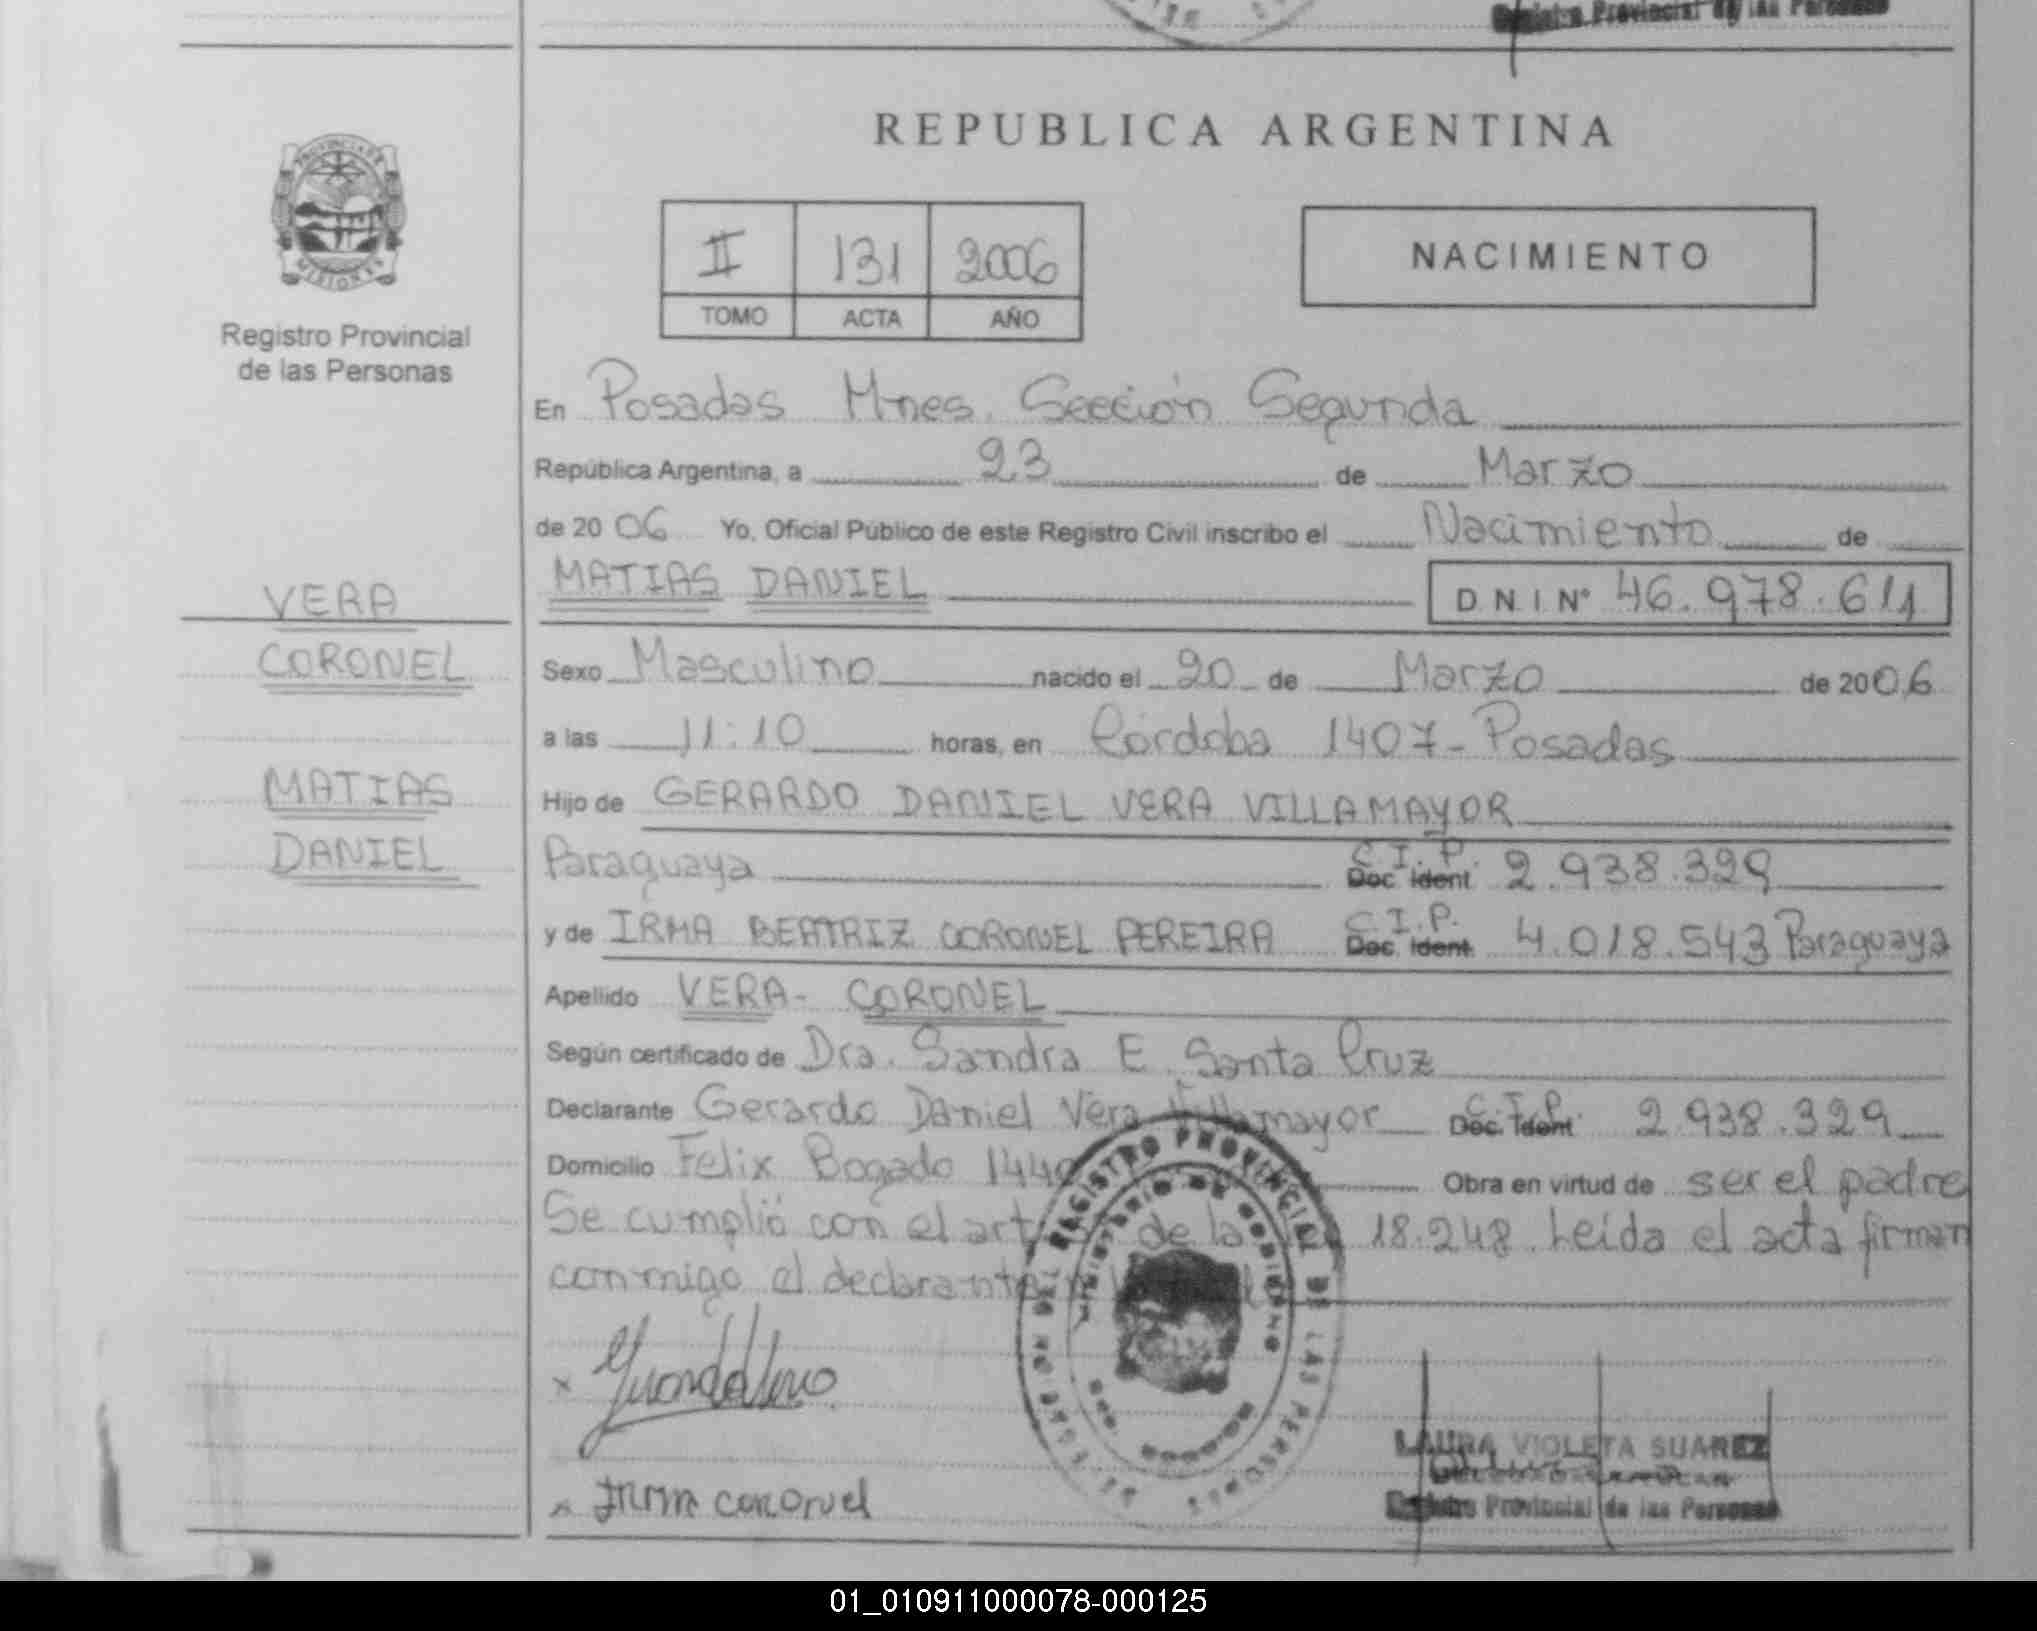 Registro Provincial de las Personas
PROVINCIA DE
MISIONES
Registro Provincial
de las Personas
REPUBLICA ARGENTINA
II 131 2006
TOMO ACTA AÑO
NACIMIENTO
En Posadas Mnes. Sección Segunda
República Argentina, a 23 de Marzo
de 2006 Yo, Oficial Público de este Registro Civil inscribo el Nacimiento de
MATIAS DANIEL D N I Nº 46.978.611
VERA
CORONEL
MATIAS
DANIEL
Sexo Masculino nacido el 20 de Marzo de 2006
a las 11:10 horas, en Córdoba 1407 - Posadas
Hijo de GERARDO DANIEL VERA VILLAMAYOR
Paraguaya C.I.P. Doc Ident 2.938.329
y de IRMA BEATRIZ CORONEL PEREIRA C.I.P. Doc. Ident. 4.018.543 Paraguaya
Apellido VERA - CORONEL
Según certificado de Dra. Sandra E. Santa Cruz
Declarante Gerardo Daniel Vera Villamayor C.I.P. Doc. Ident 2.938.329
Domicilio Felix Bogado 1440 Obra en virtud de ser el padre
Se cumplió con el art de la 18.248. Leída el acta firman
conmigo el declarante
REGISTRO PROVINCIAL DE LAS PERSONAS
MINISTERIO DE GOBIERNO
x
x Irma coronel
LAURA VIOLETA SUAREZ
Registro Provincial de las Personas
01_010911000078-000125